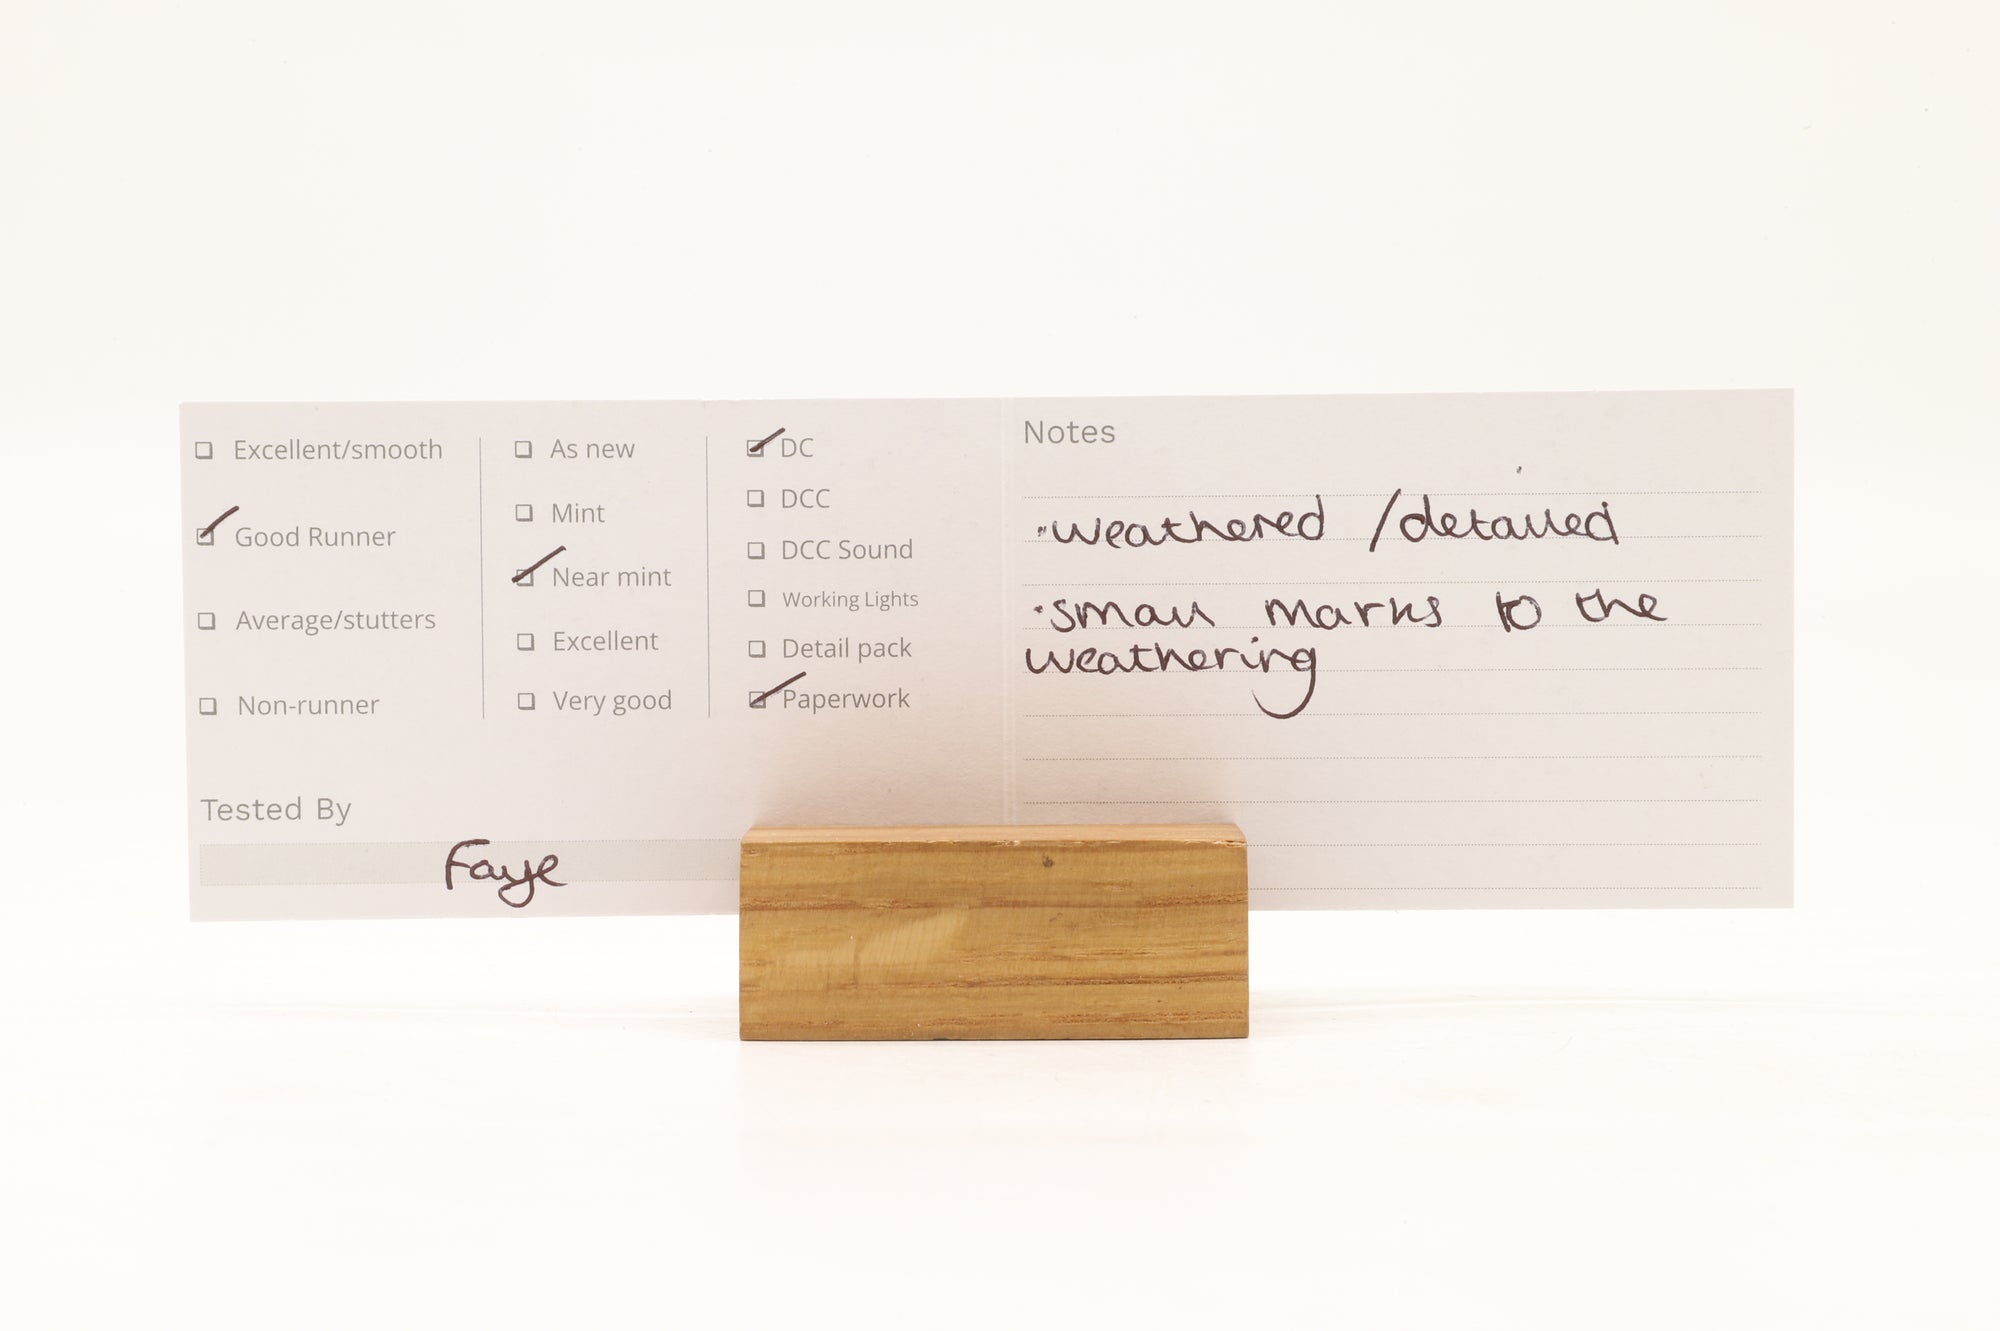 ☐ Excellent/smooth
☑ Good Runner
☐ Average/stutters
☐ Non-runner
☐ As new
☐ Mint
☑ Near mint
☐ Excellent
☐ Very good
☑ DC
☐ DCC
☐ DCC Sound
☐ Working Lights
☐ Detail pack
☑ Paperwork
Tested By
Faye
Notes
·weathered /detailed
·small marks to the
weathering